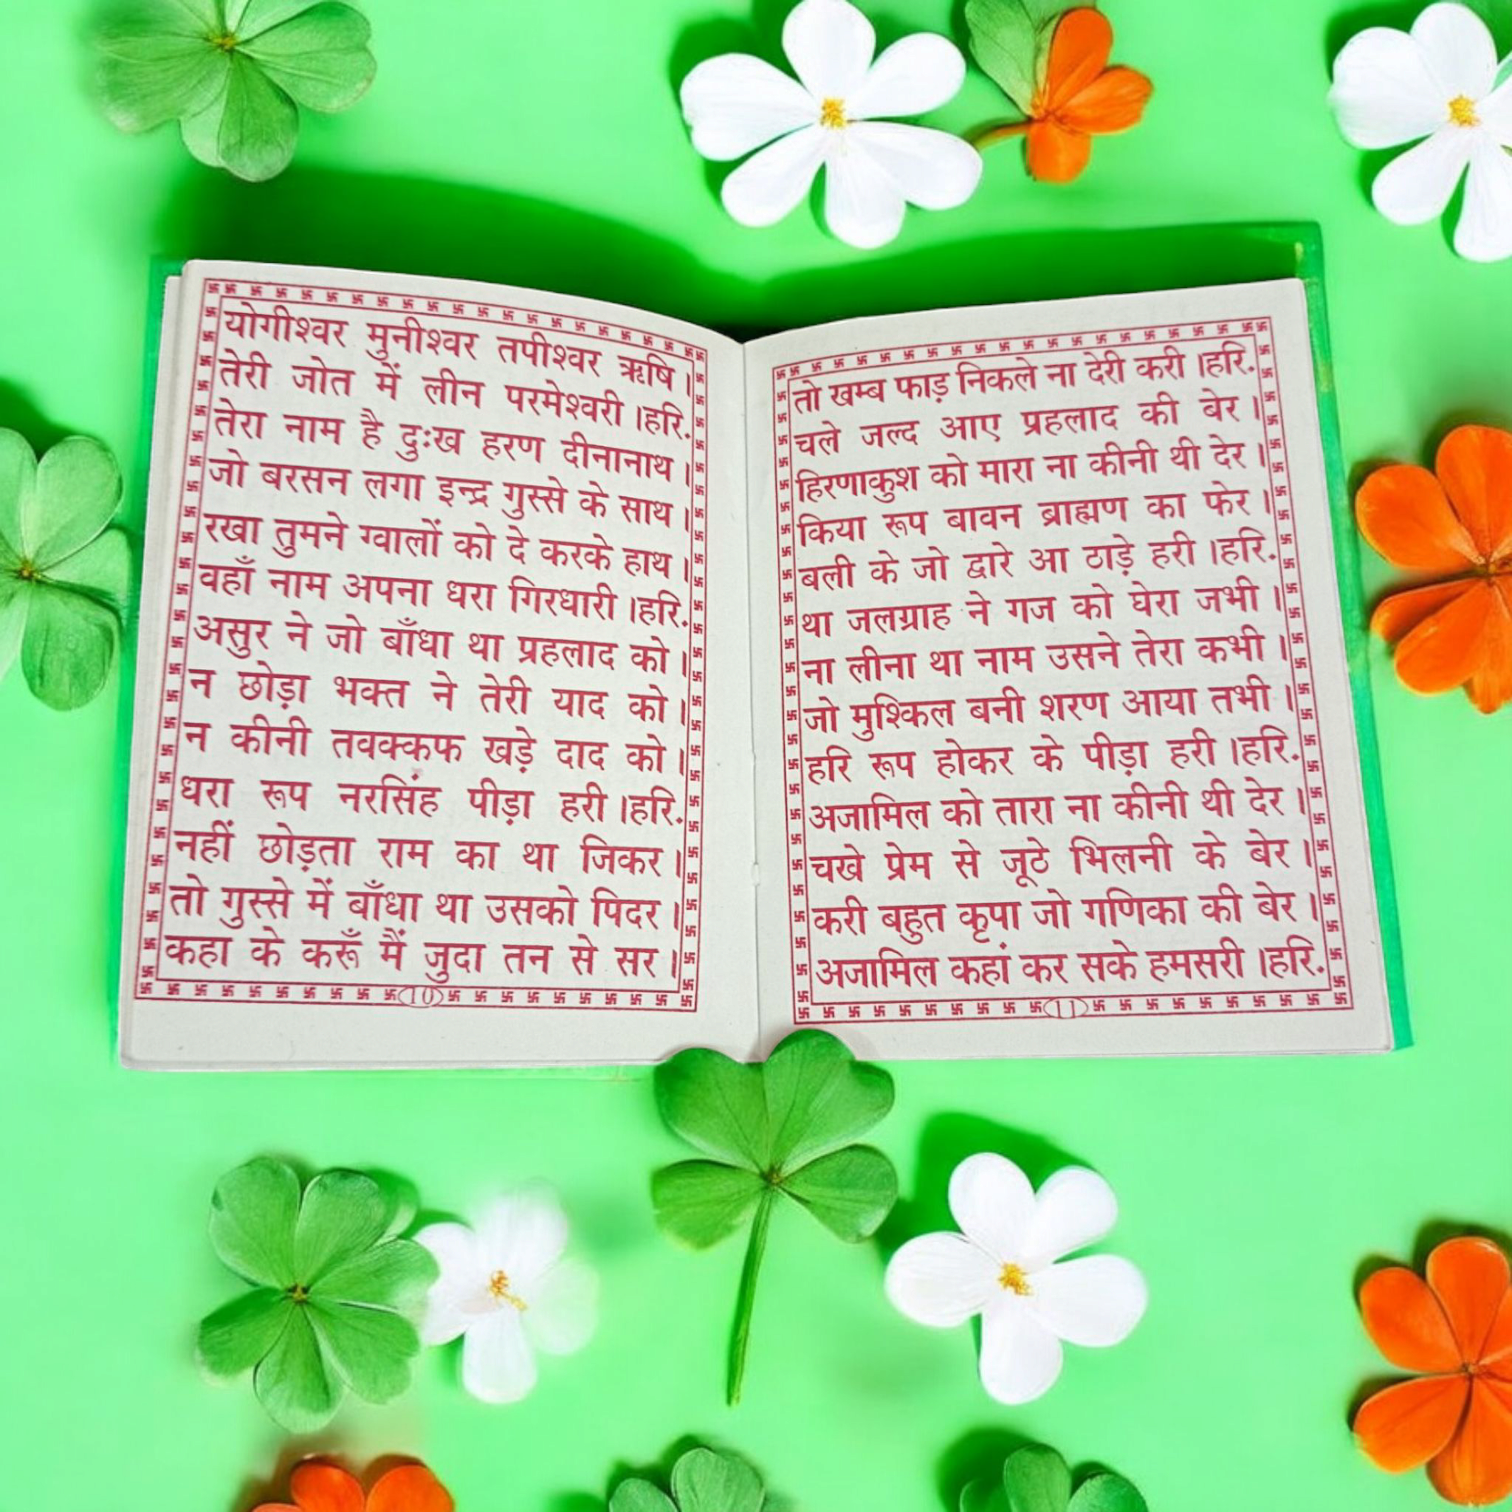 योगीश्वर मुनीश्वर तपीश्वर ऋषि।
तेरी जोत में लीन परमेश्वरी।हरि.
तेरा नाम है दुःख हरण दीनानाथ।
जो बरसन लगा इन्द्र गुस्से के साथ।
रखा तुमने ग्वालों को दे करके हाथ।
वहाँ नाम अपना धरा गिरधारी।हरि.
असुर ने जो बाँधा था प्रहलाद को।
न छोड़ा भक्त ने तेरी याद को।
न कीनी तवक्कफ खड़े दाद को।
धरा रूप नरसिंह पीड़ा हरी।हरि.
नहीं छोड़ता राम का था जिकर।
तो गुस्से में बाँधा था उसको पिदर।
कहा के करूँ मैं जुदा तन से सर।
10
तो खम्ब फाड़ निकले ना देरी करी।हरि.
चले जल्द आए प्रहलाद की बेर।
हिरणाकुश को मारा ना कीनी थी देर।
किया रूप बावन ब्राह्मण का फेर।
बली के जो द्वारे आ ठाड़े हरी।हरि.
था जलग्राह ने गज को घेरा जभी।
ना लीना था नाम उसने तेरा कभी।
जो मुश्किल बनी शरण आया तभी।
हरि रूप होकर के पीड़ा हरी।हरि.
अजामिल को तारा ना कीनी थी देर।
चखे प्रेम से जूठे भिलनी के बेर।
करी बहुत कृपा जो गणिका की बेर।
अजामिल कहां कर सके हमसरी।हरि.
11